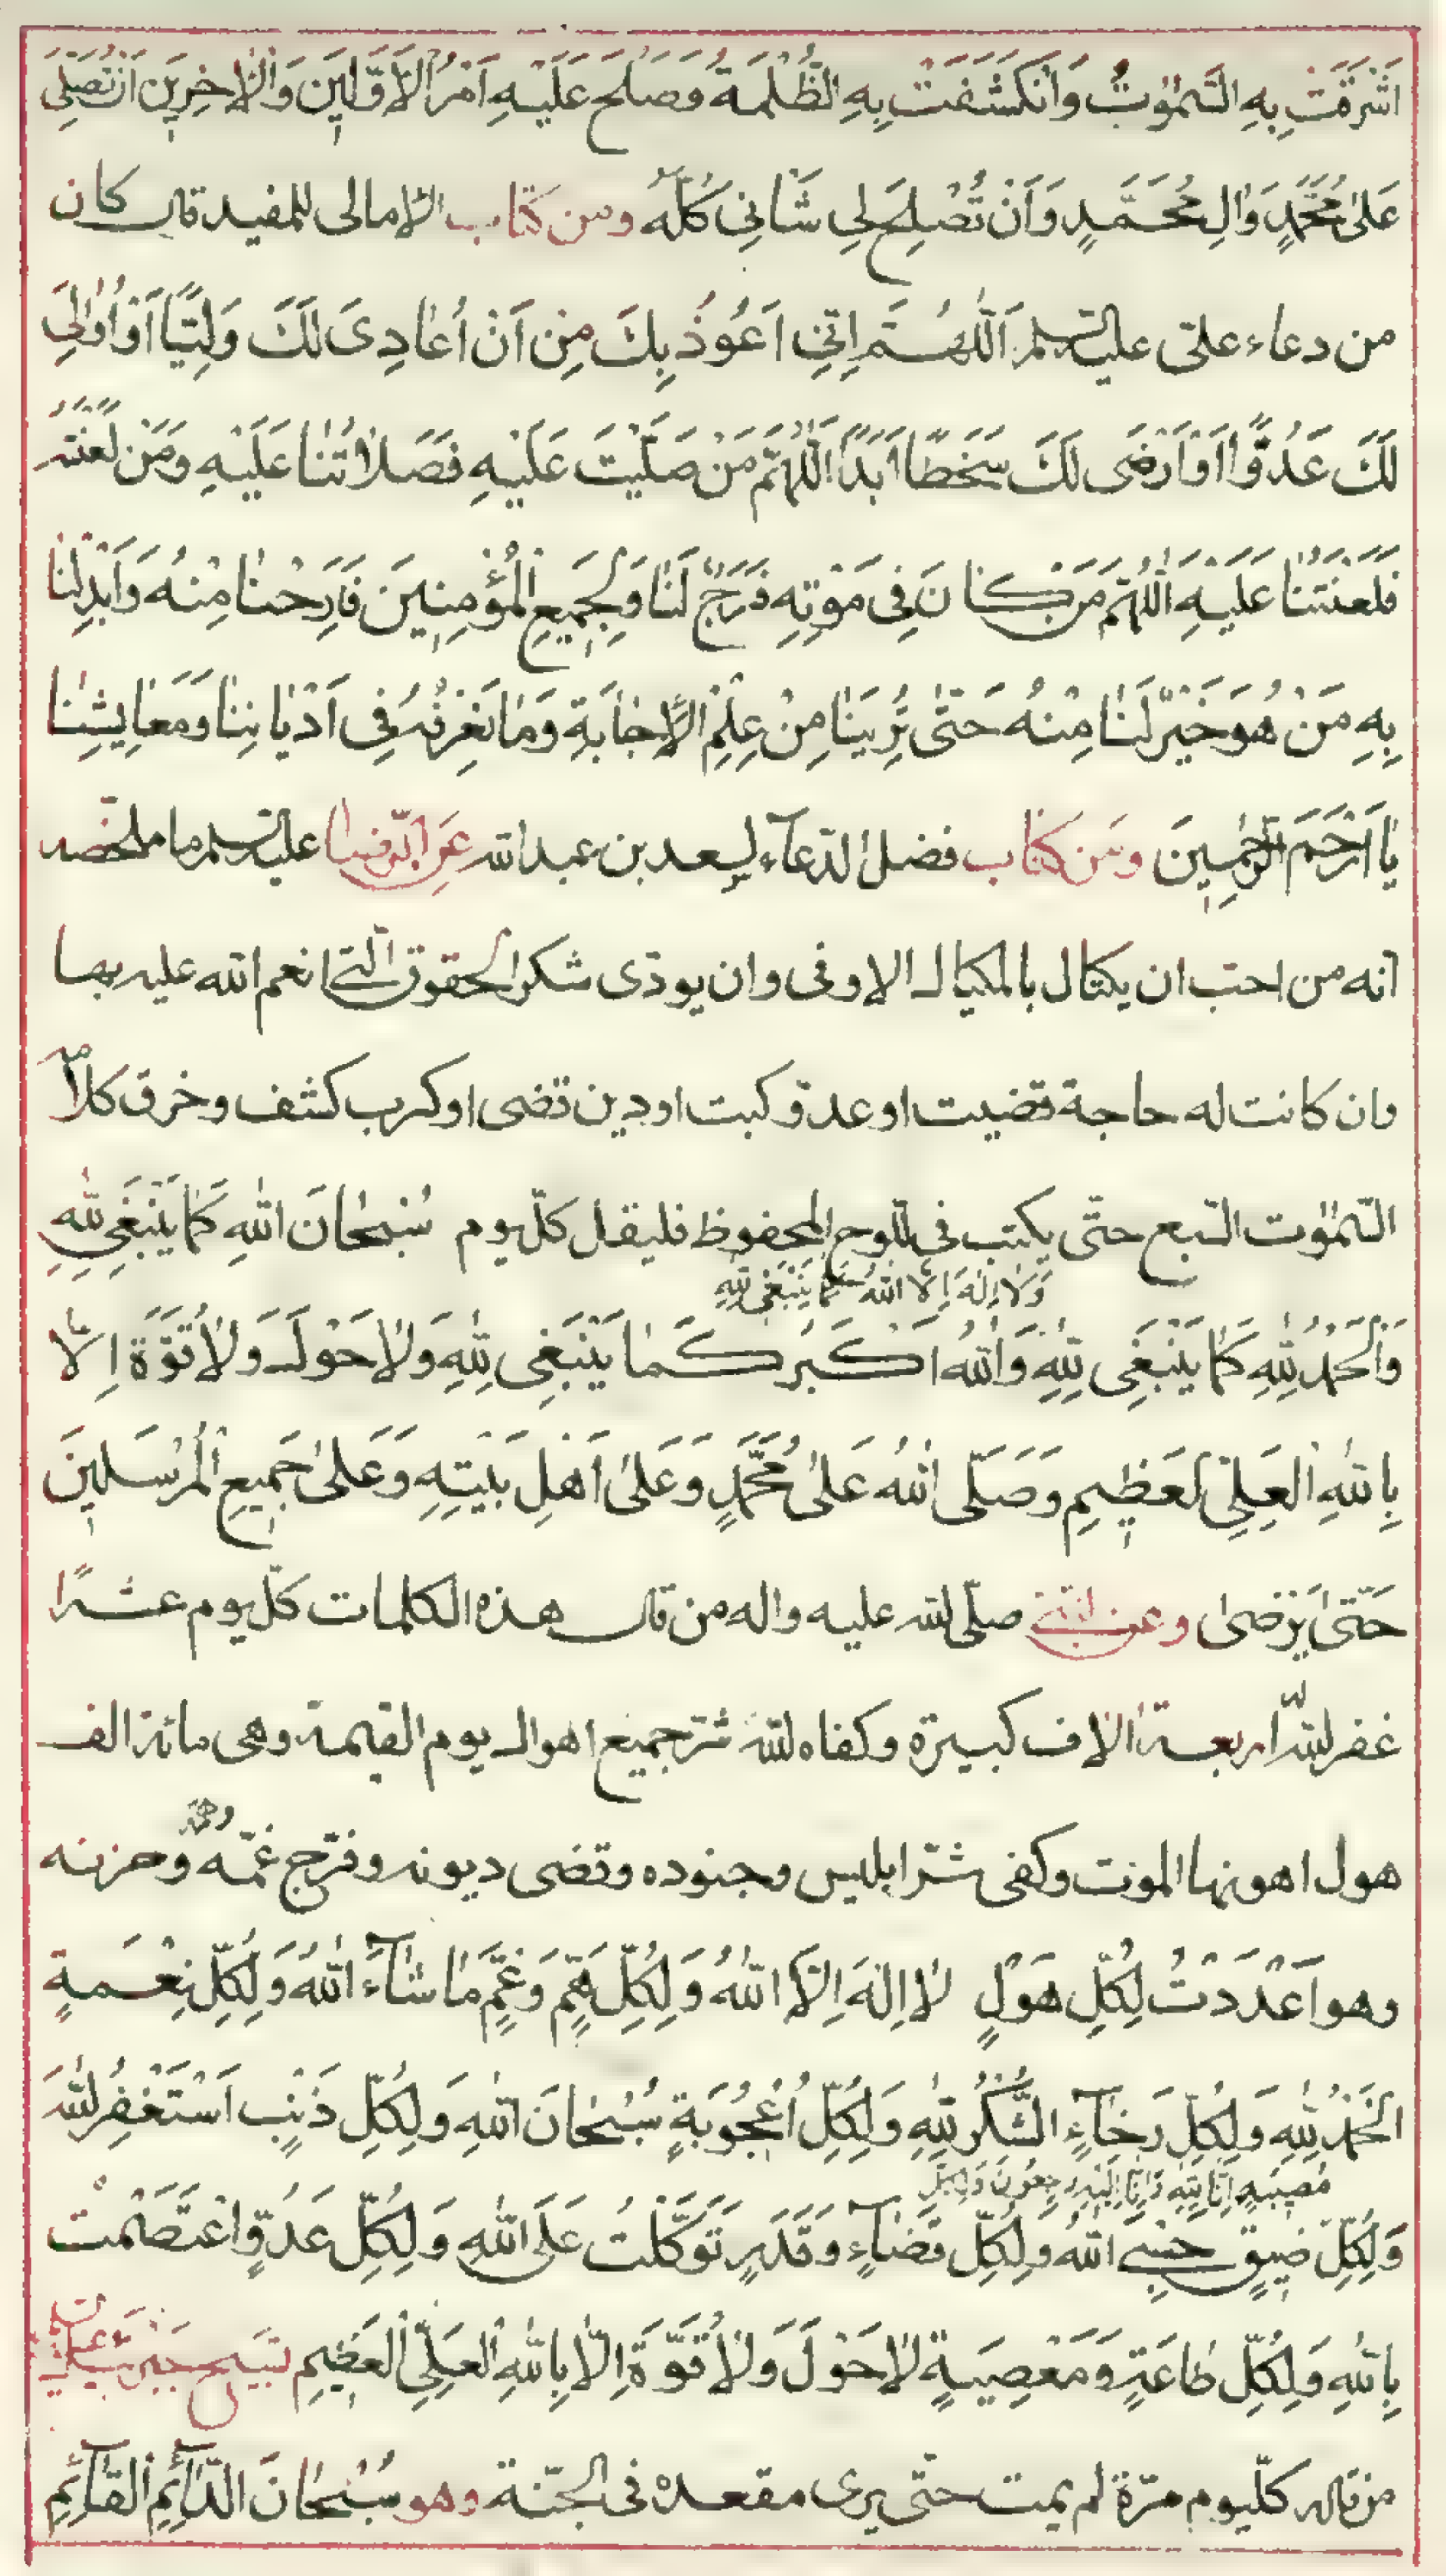 اَشْرَقَتْ بِهِ السَّمٰوٰتُ وَانْكَشَفَتْ بِهِ الظُّلْمَةُ وَصَلَحَ عَلَيْهِ اَمْرُ الْاَوَّلِينَ وَالْاٰخِرِينَ اَنْ تُصَلِّيَ
عَلىٰ مُحَمَّدٍ وَاٰلِ مُحَمَّدٍ وَاَنْ تُصْلِحَ لِي شَانِي كُلَّهُ ومن كتاب الامالى للمفيد قال كان
من دعاء علىّ عليه السلم اَللّٰهُمَّ اِنِّي اَعُوذُ بِكَ مِنْ اَنْ اُعٰادِىَ لَكَ وَلِيًّا اَوْ اُوٰالِيَ
لَكَ عَدُوًّا اَوْ اَرْضَى لَكَ سَخَطًا اَبَدًا اَللّٰهُمَّ مَنْ صَلَّيْتَ عَلَيْهِ فَصَلَاتُنٰا عَلَيْهِ وَمَنْ لَعَنْتَهُ
فَلَعْنَتُنٰا عَلَيْهِ اَللّٰهُمَّ مَنْ كٰانَ فِى مَوْتِهِ فَرَجٌ لَنٰا وَلِجَمِيعِ الْمُؤْمِنِينَ فَاَرِحْنٰا مِنْهُ وَاَبْدِلْنٰا
بِهِ مَنْ هُوَ خَيْرٌ لَنٰا مِنْهُ حَتّٰى تُرِيَنٰا مِنْ عِلْمِ الْاِجٰابَةِ وَمٰا نَعْرِفُهُ فِى اَدْيٰانِنٰا وَمَعٰايِشِنٰا
يٰا اَرْحَمَ الرّٰحِمِينَ ومن كتاب فضل الدعآء لسعد بن عبد الله عَنِ الرّضا عليه السلم ما ملخصه
انه من احب ان يكتال بالمكيال الاوفى وان يودى شكر الحقوق التى انعم الله عليه بها
وان كانت له حاجة قضيت او عدوّ كبت او دين قضى او كرب كشف وخرق كلامه
السّمٰوٰت السّبع حتّى يكتب فى اللّوح المحفوظ فليقل كلّ يوم سُبْحٰانَ اللهِ كَمٰا يَنْبَغِي لِلّٰهِ
وَلَا اِلٰهَ اِلَّا اللهُ كَمٰا يَنْبَغِى لِلّٰهِ
وَالْحَمْدُ لِلّٰهِ كَمٰا يَنْبَغِى لِلّٰهِ وَاللهُ اَكْبَرُ كَمٰا يَنْبَغِى لِلّٰهِ وَلٰا حَوْلَ وَلٰا قُوَّةَ اِلَّا
بِاللهِ الْعَلِىِّ الْعَظِيمِ وَصَلَّى اللهُ عَلىٰ مُحَمَّدٍ وَعَلىٰ اَهْلِ بَيْتِهِ وَعَلىٰ جَمِيعِ الْمُرْسَلِينَ
حَتّٰى يَرْضىٰ وعن النبى صلّى الله عليه واله من قال هذه الكلمات كلّ يوم عشرًا
غفر الله له اربعة الاف كبيرة وكفاه الله شر جميع اهوال يوم القيمة وهى مائة الف
هول اهونها الموت وكفى شرّ ابليس وجنوده وقضى ديونه وفرّج غمّه وهمّه وحزنه
وهو اَعْدَدْتُ لِكُلِّ هَوْلٍ لٰا اِلٰهَ اِلَّا اللهُ وَلِكُلِّ هَمٍّ وَغَمٍّ مٰا شٰآءَ اللهُ وَلِكُلِّ نِعْمَةٍ
الْحَمْدُ لِلّٰهِ وَلِكُلِّ رَخٰآءٍ الشُّكْرُ لِلّٰهِ وَلِكُلِّ اُعْجُوبَةٍ سُبْحٰانَ اللهِ وَلِكُلِّ ذَنْبٍ اَسْتَغْفِرُ اللهَ
مُصِيبَةٍ اِنّٰا لِلّٰهِ وَاِنّٰا اِلَيْهِ رٰجِعُونَ وَلِكُلِّ
وَلِكُلِّ ضِيقٍ حَسْبِيَ اللهُ وَلِكُلِّ قَضٰآءٍ وَقَدَرٍ تَوَكَّلْتُ عَلَى اللهِ وَلِكُلِّ عَدُوٍّ اِعْتَصَمْتُ
بِاللهِ وَلِكُلِّ طٰاعَةٍ وَمَعْصِيَةٍ لٰا حَوْلَ وَلٰا قُوَّةَ اِلّٰا بِاللهِ الْعَلِىِّ الْعَظِيمِ تسبيح جبرئيل عليه السلم
من قاله كلّ يوم مرّة لم يمت حتّى يرى مقعده فى الجنّة وهو سُبْحٰانَ الدّٰآئِمِ الْقٰآئِمِ